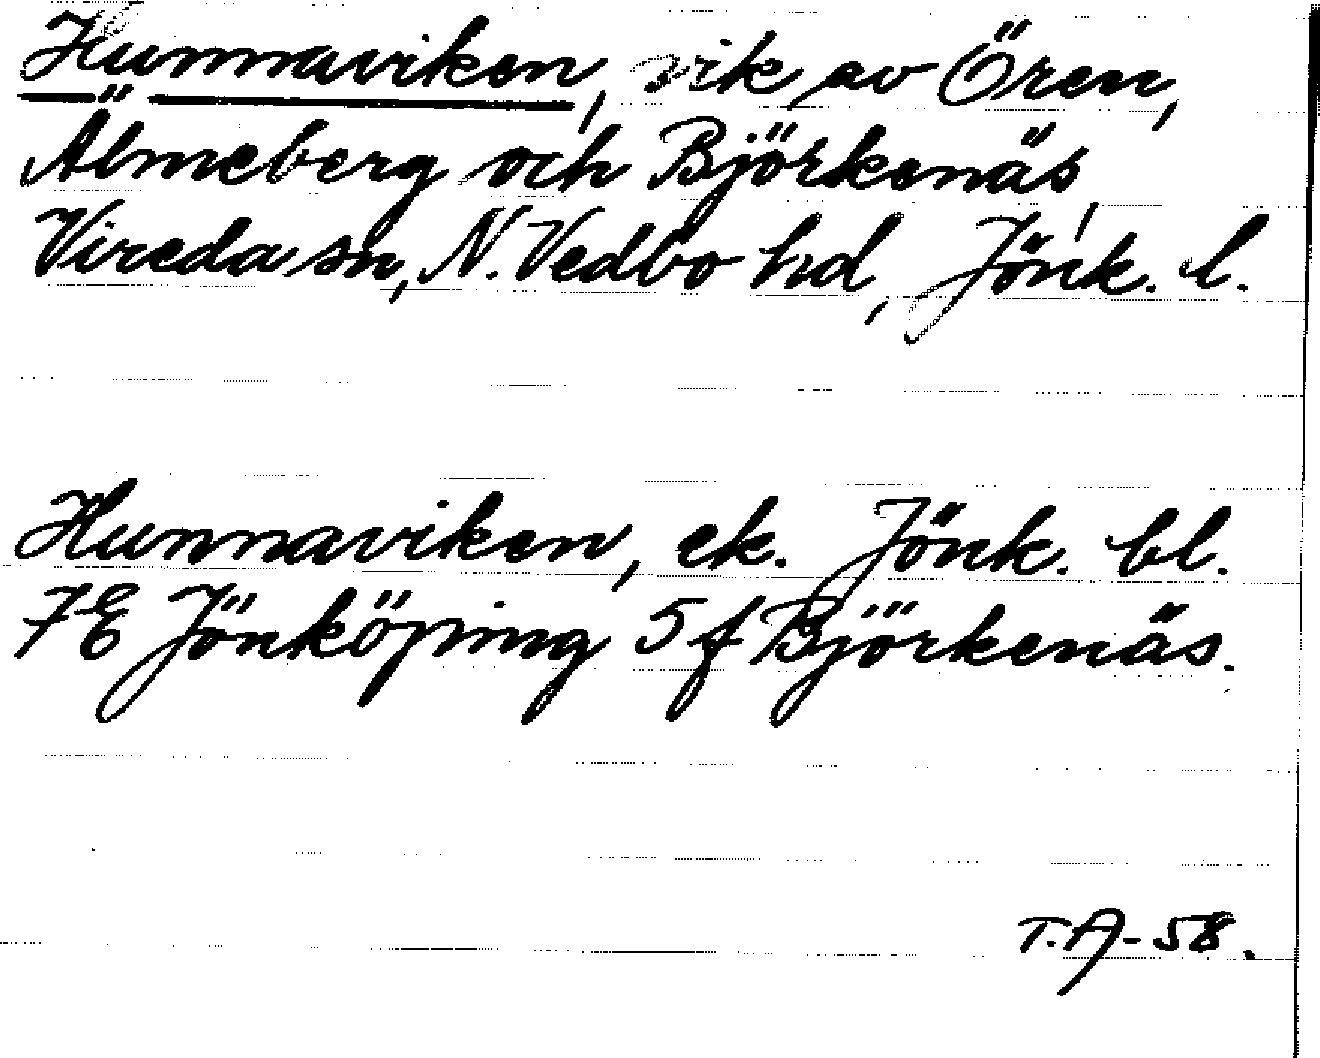 Hunnaviken, vik av Ören,
Älmeberg och Björkenäs,
Vireda sn, N. Vedbo hd, Jönk. l.
Hunnaviken, ek. Jönk. bl.
7E Jönköping 5f Björkenäs.
T.A-58.